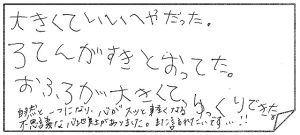 大きくていいへやだった。
ろてんがすきとおってた。
おふろが大きくて、ゆっくりできた。
自然と一つになり、心がスッと軽くなる
不思議な心地よさがありました。また来たいです…!!